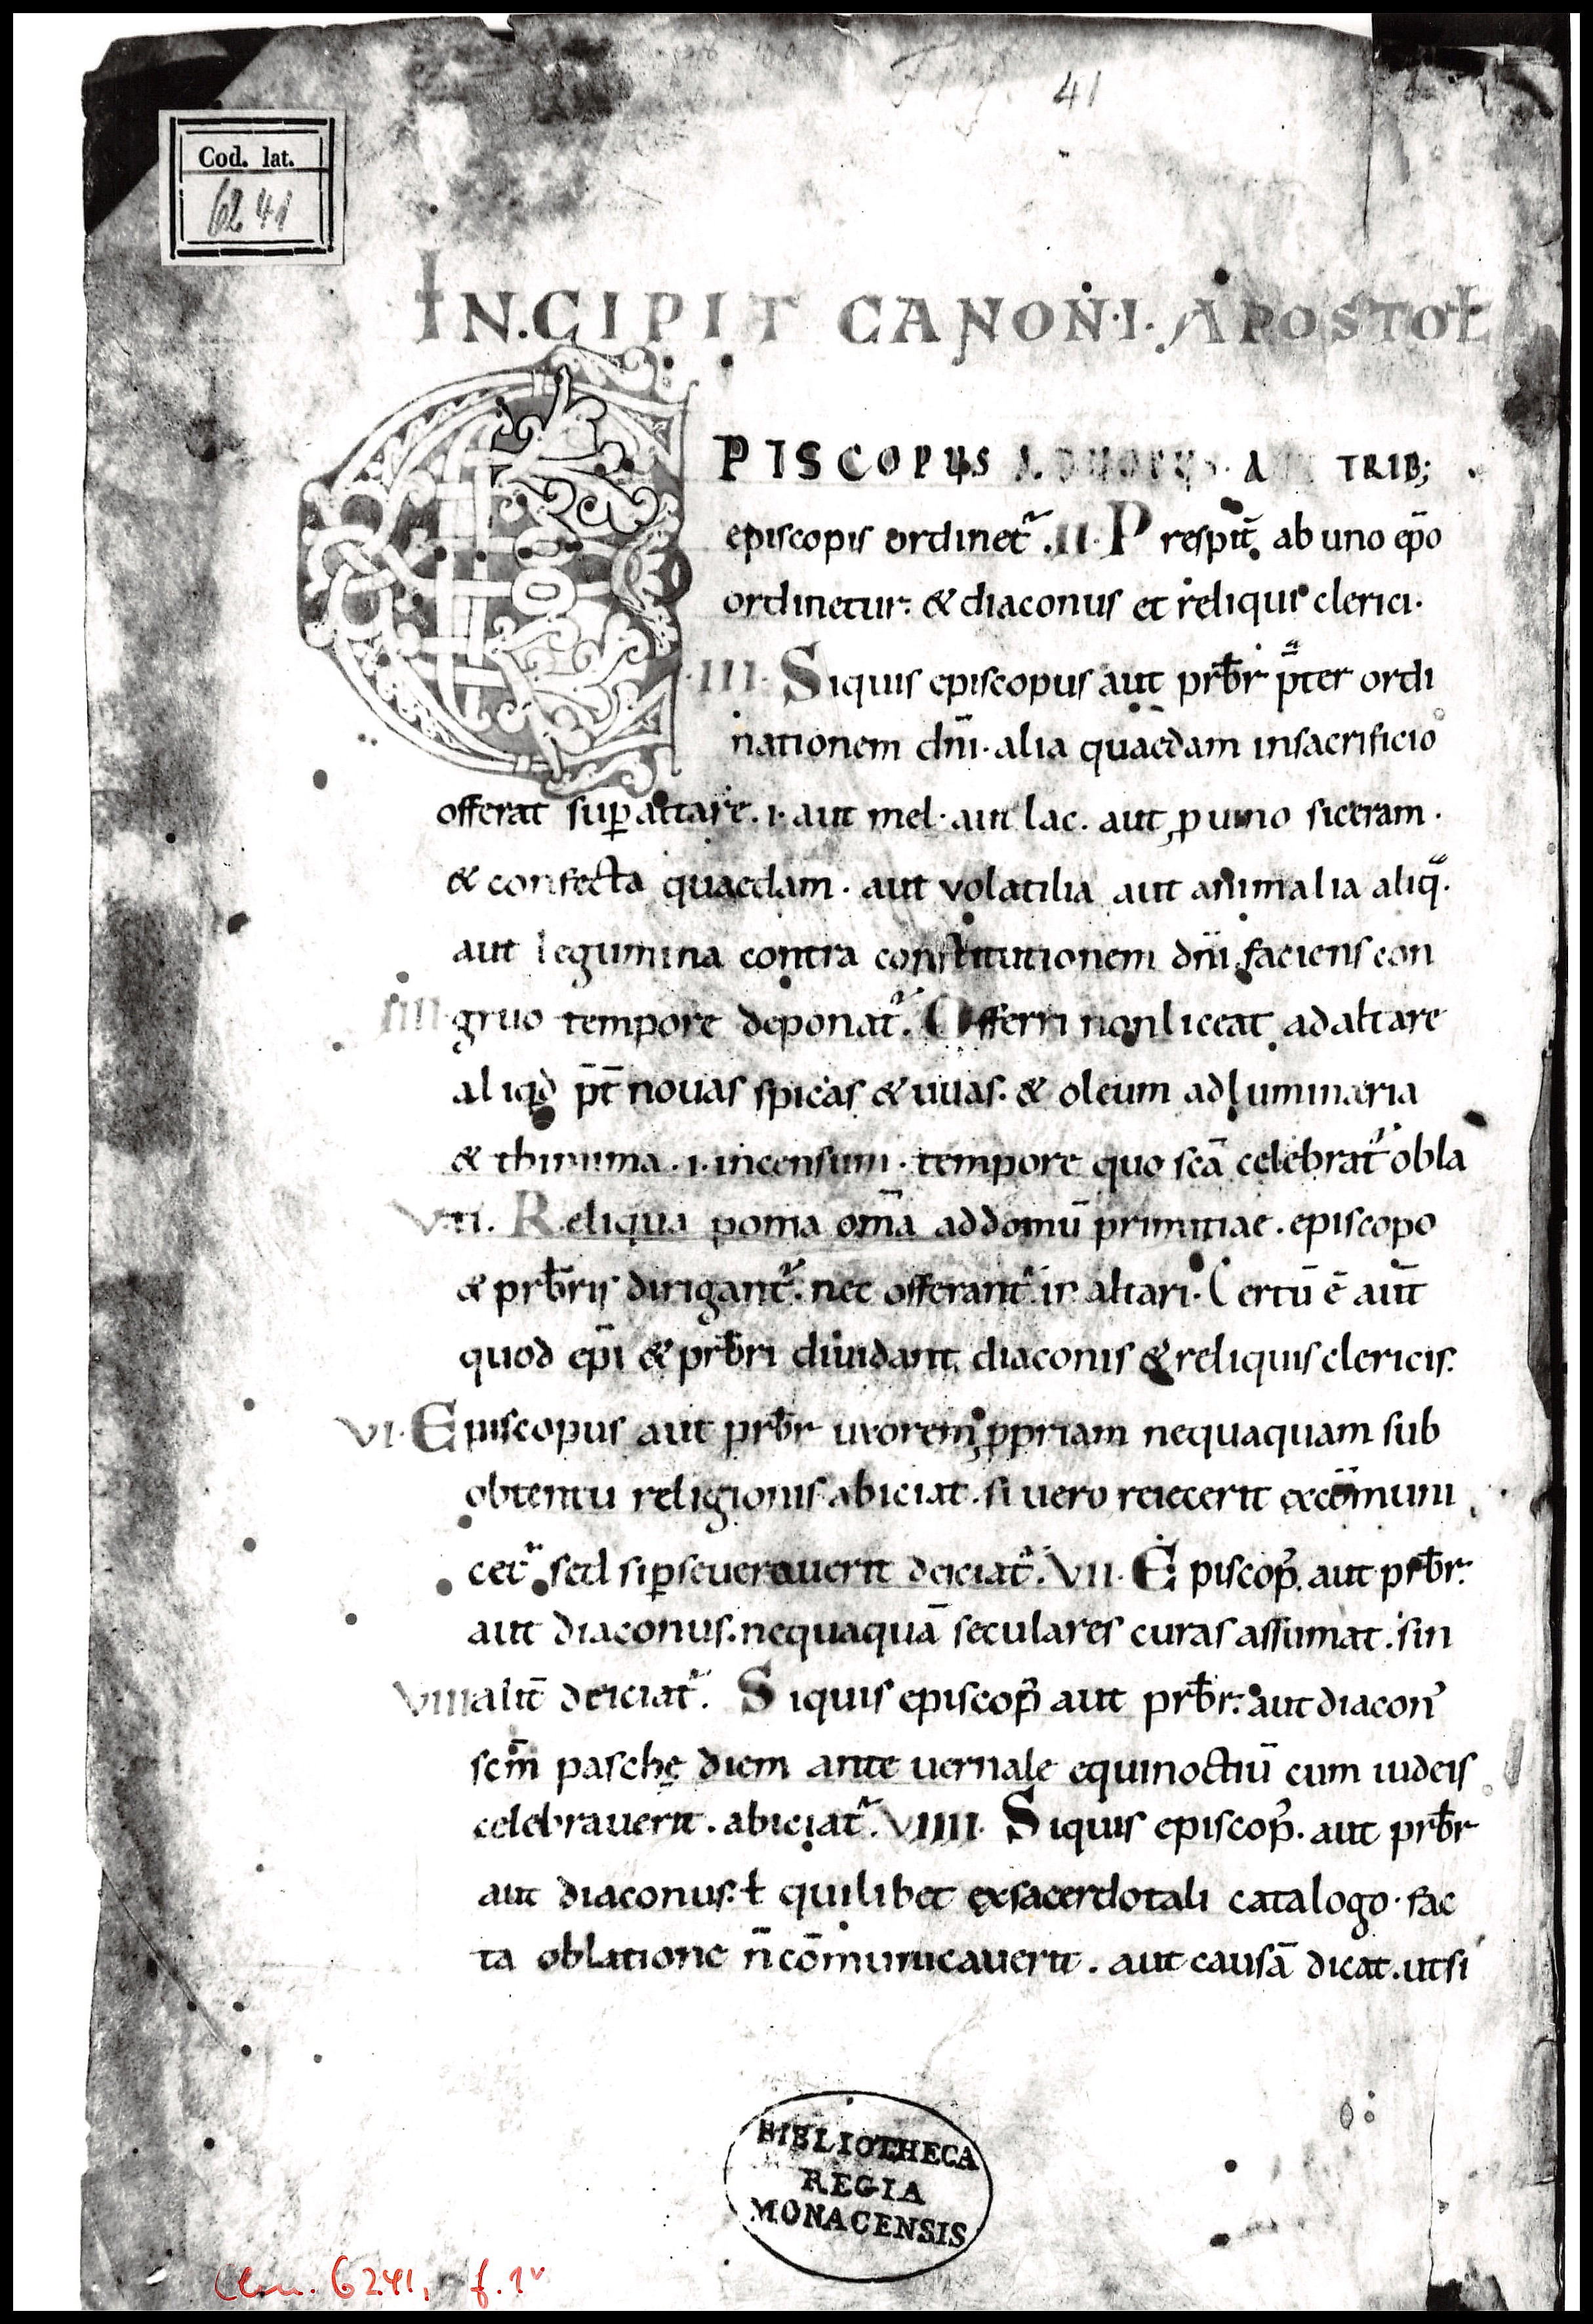 41
Cod. lat.
6241
INCIPIT CANON̄·I· APOSTOŁ
EPISCOPUS A DUOBUS· A TRIB;
episcopis ordinet᷑ .II· P resp̄it̄ ab uno ep̄o
ordinetur· & diaconus et reliquis clerici·
·III· Siquis episcopus aut pr̄br p̄ter ordi
nationem dn̄i· alia quaedam insacrificio
offerat suꝑ altare· ·i· aut mel· aut lac· aut ꝓ uino siceram·
& confecta quaedam· aut volatilia aut animalia aliq̄·
aut legumina contra constitutionem dn̄i faciens con
IIII gruo tempore deponat᷑. Offerri nonliceat adaltare
aliqd p̄t̄ nouas spicas & uuas· & oleum adluminaria
& thimiama ·i· incensum· tempore quo sc̄a celebrat᷑ obla
V· ti. Reliqua poma om̄a addomū primitiae· episcopo
& pr̄bris dirigant᷑· nec offerant᷑ in altari· Certū ē aut̄
quod ep̄i & pr̄bri diuidant diaconis & reliquis clericis·
VI· Episcopus aut pr̄br uxorem ꝓpriam nequaquam sub
obtentu religionis abiciat· si uero reiecerit excōmuni
cet᷑ sed siꝑseuerauerit deiciat᷑. VII· Episcop᷒ aut pr̄br·
aut diaconus· nequaquā seculares curas assumat· sin
VIII alit̄ deiciat᷑. Siquis episcop᷒ aut pr̄br· aut diacon᷒
scm̄ paschę diem ante uernale equinoctiū cum iudeis
celebrauerit· abiciat᷑. VIIII· Siquis episcop᷒· aut pr̄br
aut diaconus· ł quilibet exsacerdotali catalogo· fac
ta oblatione n̄ cōmunicauerit· aut causā dicat· utsi
BIBLIOTHECA
REGIA
MONACENSIS
Clm. 6241, f. 1v